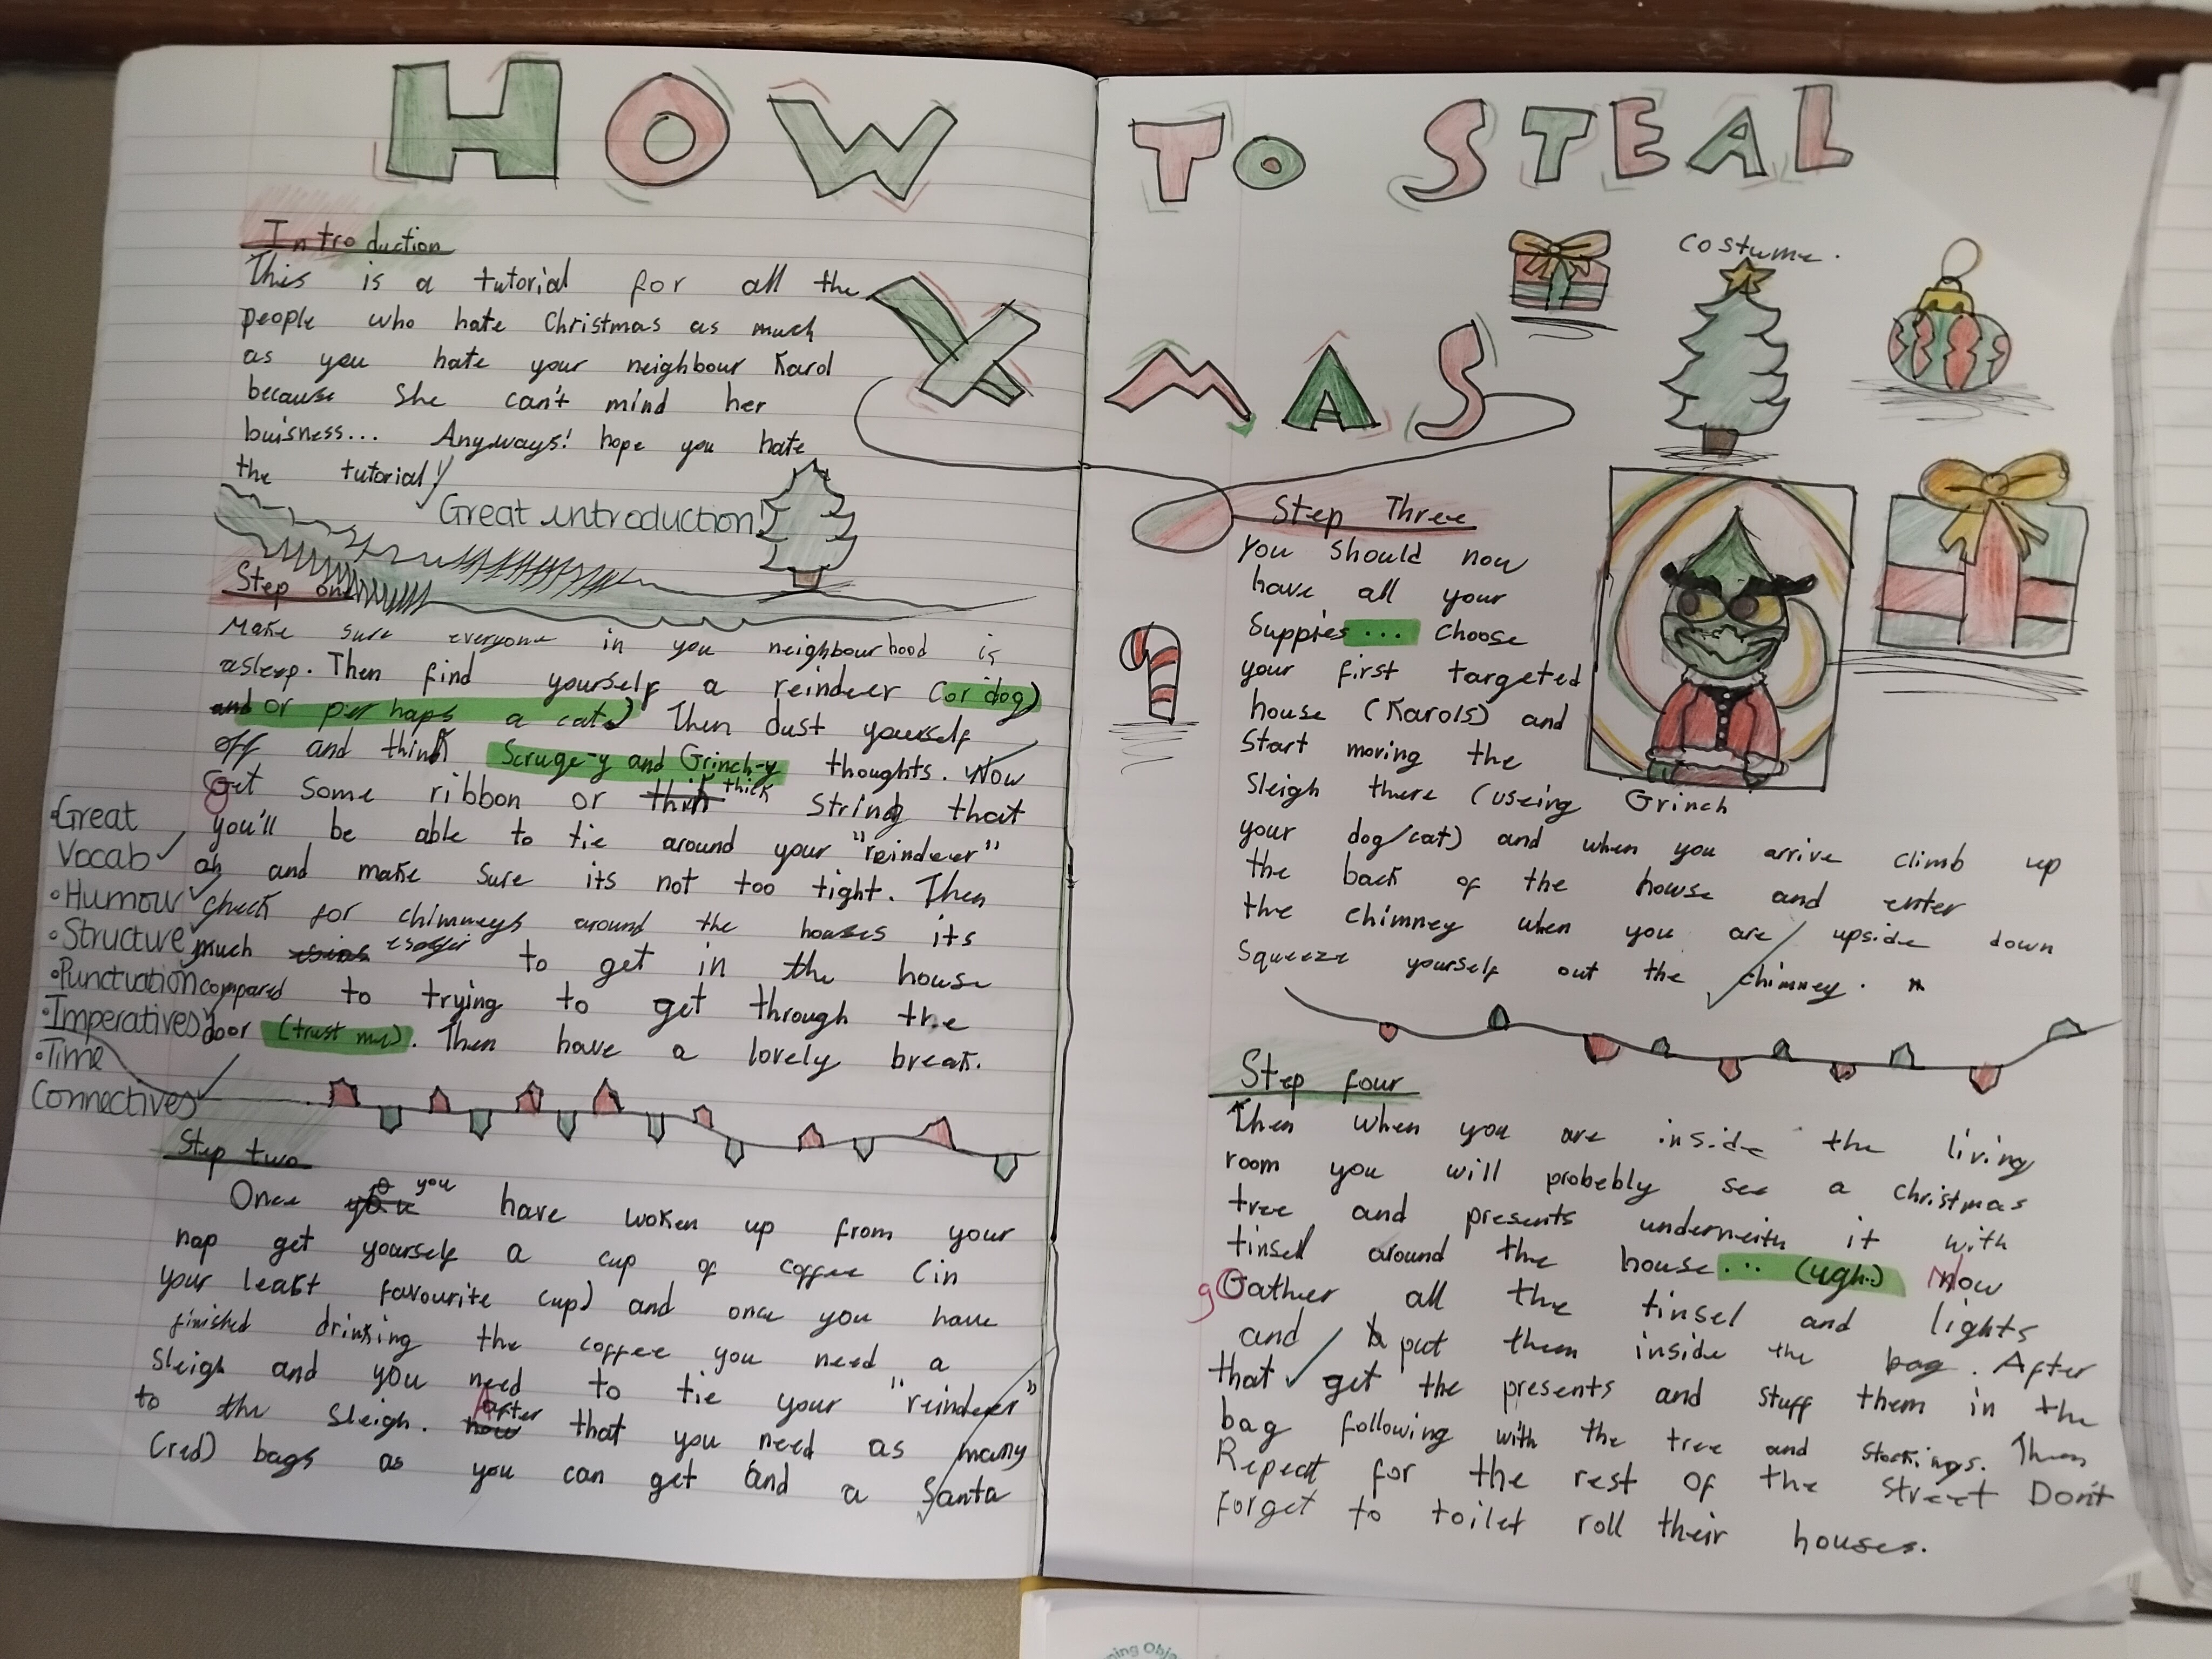 HOW TO STEAL
XMAS
Introduction
This is a tutorial for all the
people who hate Christmas as much
as you hate your neighbour Karol
because She can't mind her
buisness... Anyways! hope you hate
the tutorial!
Great introduction!
Step one
Make sure everyone in you neighbourhood is
asleep. Then find yourself a reindeer (or dog)
and or perhaps a cat) Then dust yourself
off and think Scruge-y and Grinch-y thoughts. Now
Get some ribbon or thick string that
you'll be able to tie around your "reindeer"
oh and make sure its not too tight. Then
check for chimneys around the houses its
much to get in the house
compared to trying to get through the
door (trust me). Then have a lovely break.
•Great
Vocab
•Humour
•Structure
•Punctuation
•Imperatives
•Time
Connectives
Step two
Once you have woken up from your
nap get yourself a cup of coffee (in
your least favourite cup) and once you have
finished drinking the coffee you need a
Sleigh and you need to tie your "reindeer"
to the sleigh. After that you need as many
(red) bags as you can get and a Santa
costume.
Step Three
You should now
have all your
Suppies... Choose
your first targeted
house (Karols) and
Start moving the
Sleigh there (useing
Grinch
your dog/cat) and when you arrive climb up
the back of the howse and enter
the chimney when you are upside down
Squeeze yourself out the chimney.
Step four
Then when you are inside the living
room you will probebly see a christmas
tree and presents underneith it with
tinsel around the house... (ugh..) Now
gather all the tinsel and lights
and put them inside the bag. After
that get the presents and stuff them in the
bag following with the tree and stockings. Then
Repeat for the rest of the street Don't
forget to toilet roll their houses.
ning Obje